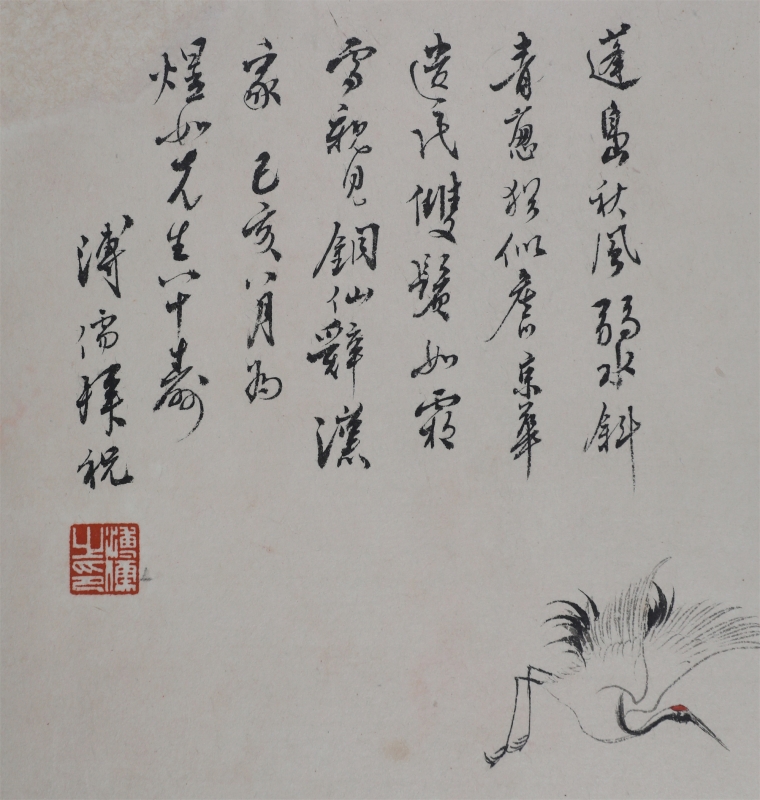 蓬島秋風弱水斜
青葱猶似舊京華
遺民雙鬢如霜
雪親見銅仙辭漢
家 己亥八月為
煜如先生八十壽
溥儒拜祝
溥儒之印